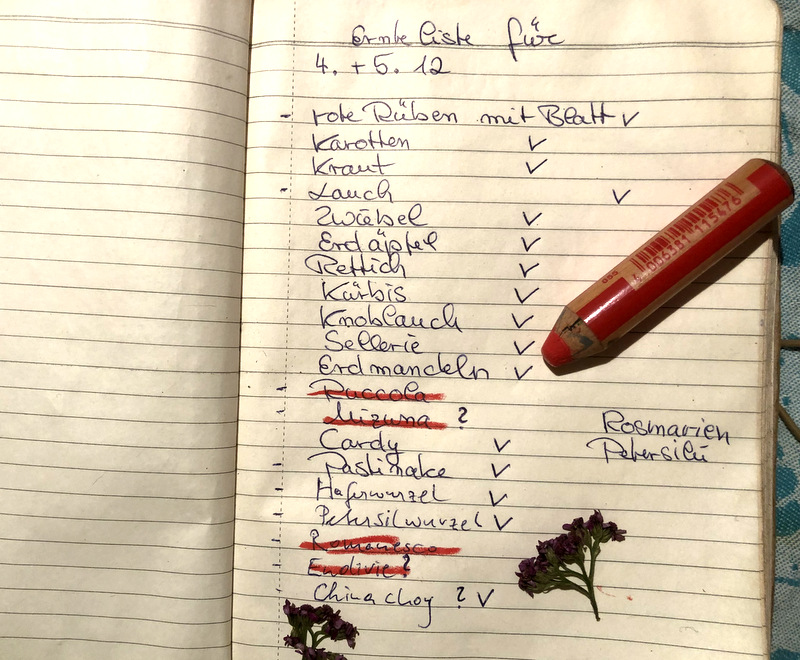 Ernte liste für
4. + 5. 12
- rote Rüben mit Blatt ✓
Karotten ✓
Kraut ✓
- Lauch ✓
Zwiebel ✓
Erdäpfel ✓
Rettich ✓
Kürbis ✓
Knoblauch ✓
Sellerie ✓
Erdmandeln ✓
- Ruccola
- Mizuna ?
Cardy ✓
- Pastinake ✓
- Haferwurzel ✓
- Petersilwurzel ✓
- Romanesco
- Endivie ?
- China choy ? ✓
Rosmarien
Petersilie
4 006381 115476